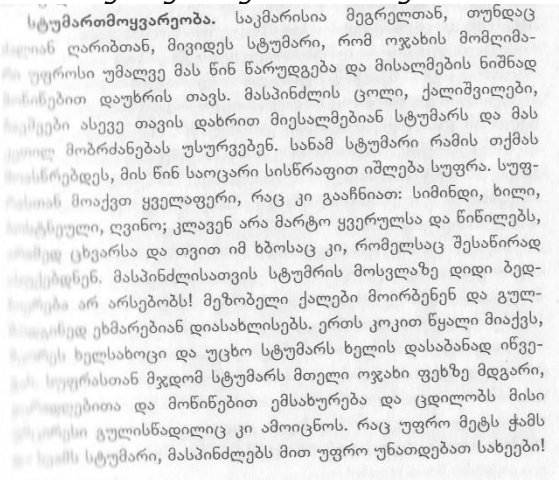 სტუმართმოყვარეობა. საკმარისია მეგრელთან, თუნდაც
ღარიბთან, მივიდეს სტუმარი, რომ ოჯახის მომღიმა-
უფროსი უმალვე მას წინ წარუდგება და მისალმების ნიშნად
დაუხრის თავს. მასპინძლის ცოლი, ქალიშვილები,
ასევე თავის დახრით მიესალმებიან სტუმარს და მას
მობრძანებას უსურვებენ. სანამ სტუმარი რამის თქმას
მის წინ საოცარი სისწრაფით იშლება სუფრა. სუფ-
მოაქვთ ყველაფერი, რაც კი გააჩნიათ: სიმინდი, ხილი,
ღვინო; კლავენ არა მარტო ყვერულსა და წიწილებს,
ცხვარსა და თვით იმ ხბოსაც კი, რომელსაც შესაწირად
მასპინძლისათვის სტუმრის მოსვლაზე დიდი ბედ-
არ არსებობს! მეზობელი ქალები მოირბენენ და გულ-
ეხმარებიან დიასახლისებს. ერთს კოკით წყალი მიაქვს,
ხელსახოცი და უცხო სტუმარს ხელის დასაბანად იწვე-
სუფრასთან მჯდომ სტუმარს მთელი ოჯახი ფეხზე მდგარი,
და მოწიწებით ემსახურება და ცდილობს მისი
გულისწადილიც კი ამოიცნოს. რაც უფრო მეტს ჭამს
სტუმარი, მასპინძლებს მით უფრო უნათდებათ სახეები!